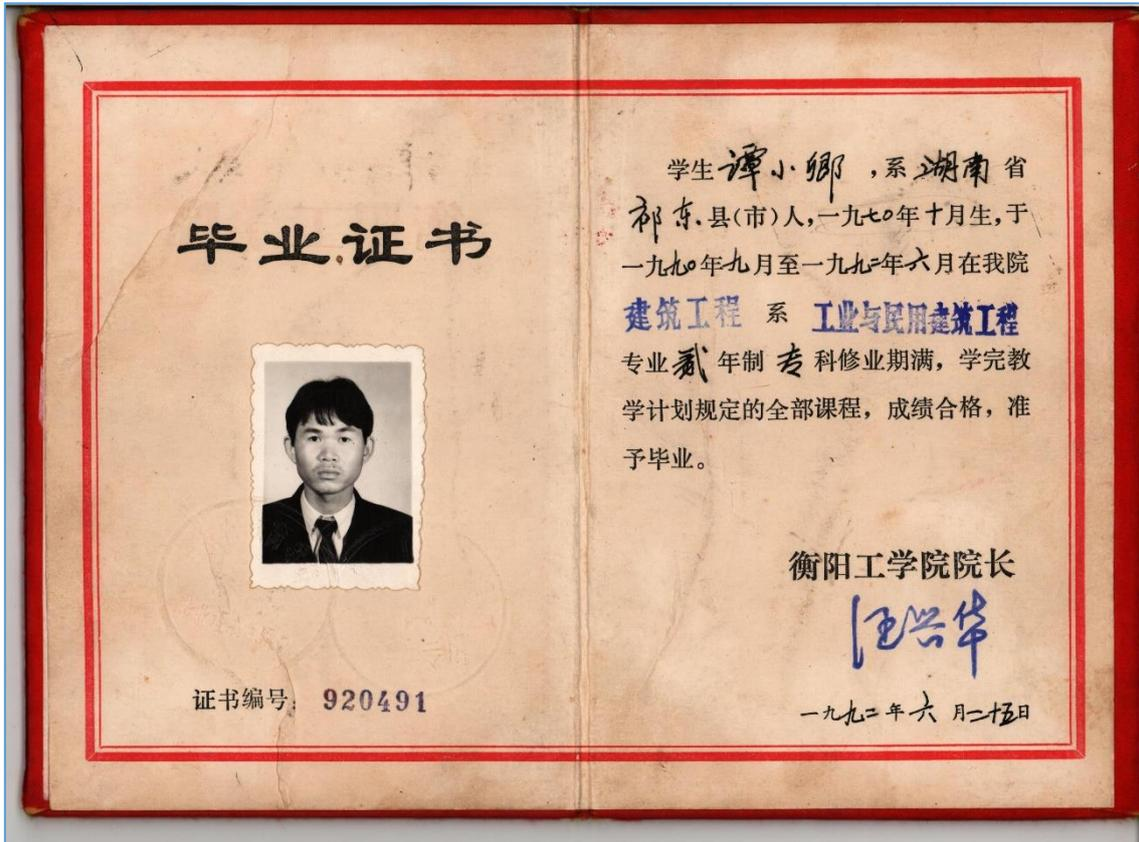 毕业证书
证书编号: 920491
学生谭小乡,系湖南省
祁东县(市)人,一九七〇年十月生,于
一九九〇年九月至一九九二年六月在我院
建筑工程 系 工业与民用建筑工程
专业 贰 年制 专 科修业期满,学完教
学计划规定的全部课程,成绩合格,准
予毕业。
衡阳工学院院长
汪兴华
一九九二年六月二十五日